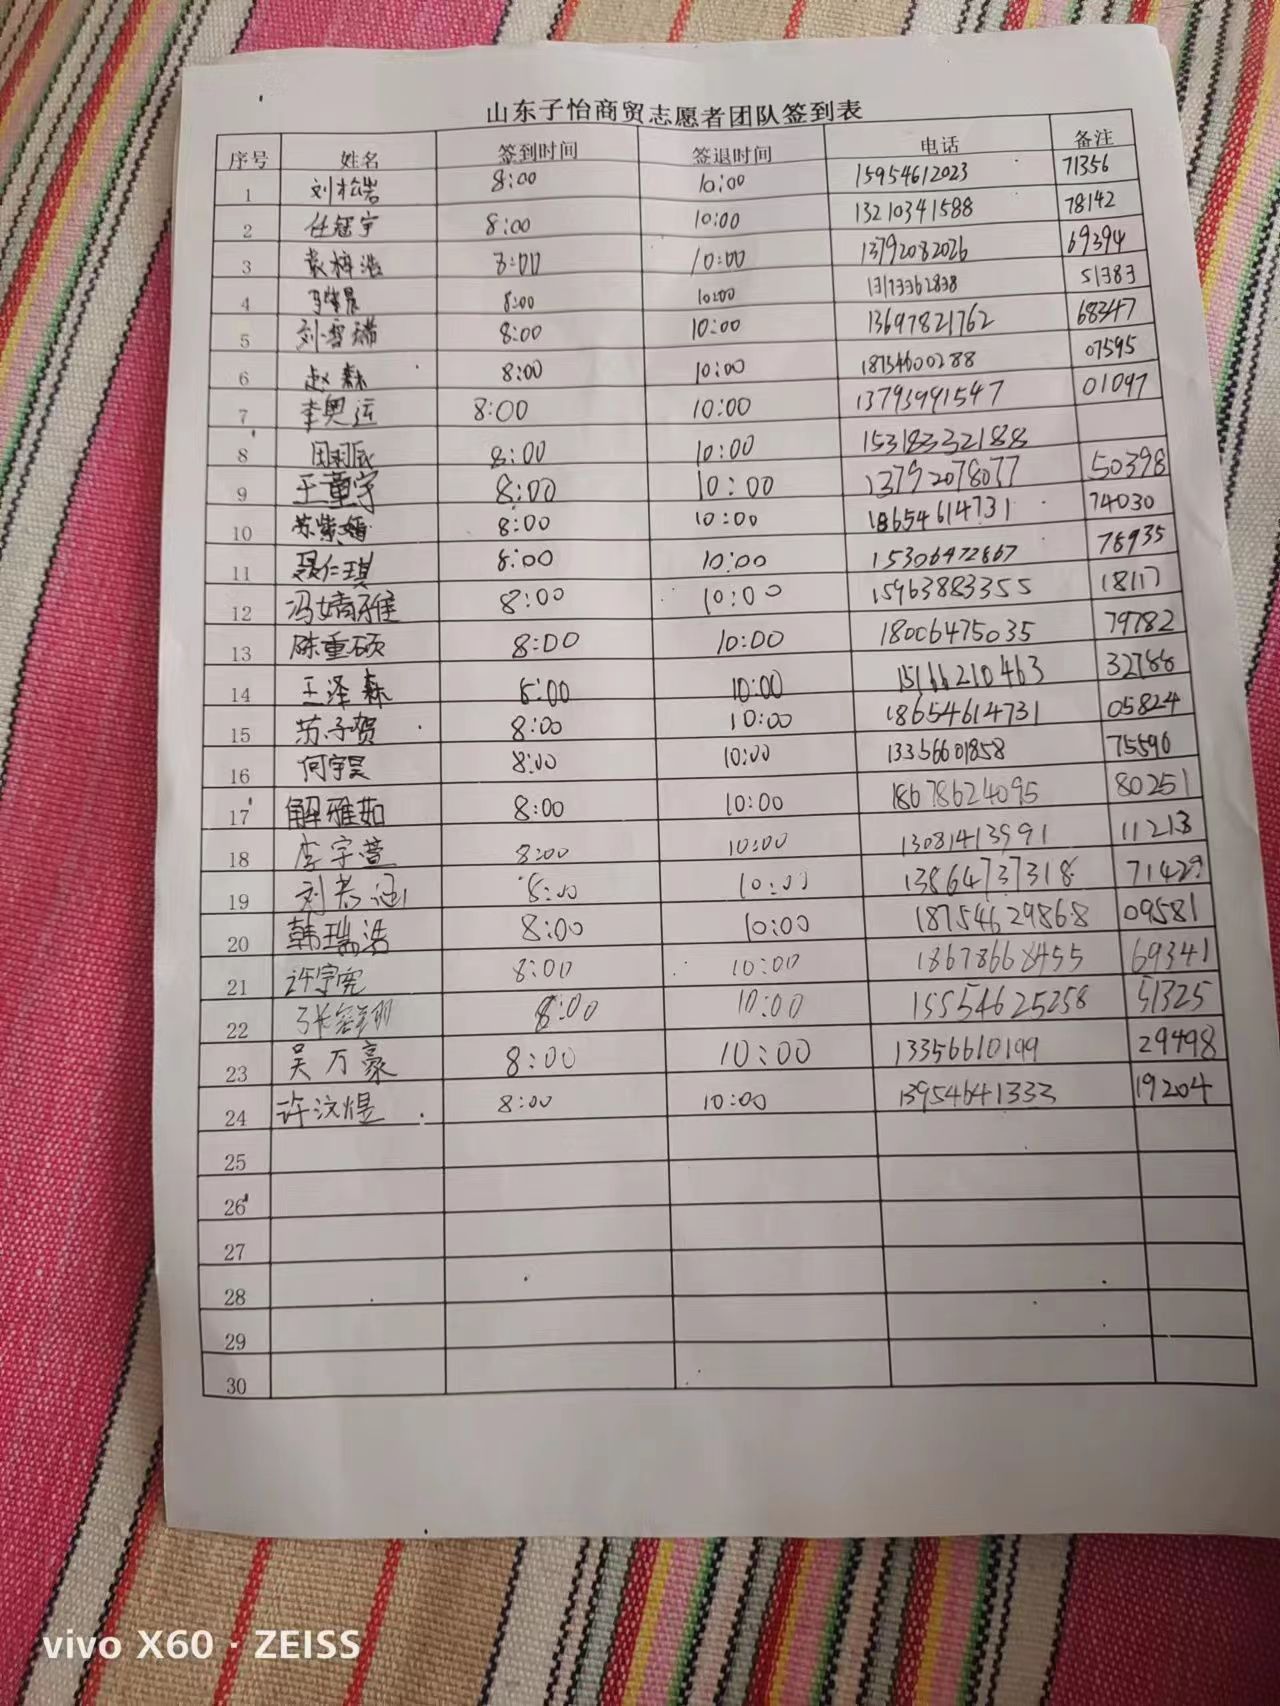 山东子怡商贸志愿者团队签到表
序号 姓名 签到时间 签退时间 电话 备注
1 刘松岩 8:00 10:00 15954612023 71356
2 任冠宇 8:00 10:00 13210341588 78142
3 袁梓浩 8:00 10:00 13792082026 69394
4 8:00 10:00 13173362838 51383
5 刘雪瑞 8:00 10:00 13697821762 68347
6 赵森 8:00 10:00 18754600288 07595
7 李奥运 8:00 10:00 13793991547 01097
8 8:00 10:00 15318332188
9 王童宇 8:00 10:00 13792078077 50398
10 苏紫嫣 8:00 10:00 18654614731 74030
11 聂仁琪 8:00 10:00 15306472867 78935
12 冯嫡雅 8:00 10:00 15963883355 18117
13 陈重硕 8:00 10:00 18006475035 79782
14 王泽森 8:00 10:00 15166210463 32788
15 苏子贺 8:00 10:00 18654614731 05824
16 何宇昊 8:00 10:00 13356601858 75596
17 解雅茹 8:00 10:00 18678624095 80251
18 李宇萱 8:00 10:00 13081413591 11213
19 刘若涵 8:00 10:00 13864737318 71429
20 韩瑞浩 8:00 10:00 18754629868 09581
21 许宇宪 8:00 10:00 18678668455 69341
22 8:00 10:00 15554625258 51325
23 吴万豪 8:00 10:00 13356610199 29498
24 许汶煜 8:00 10:00 13954641333 19204
25
26
27
28
29
30
vivo X60 · ZEISS